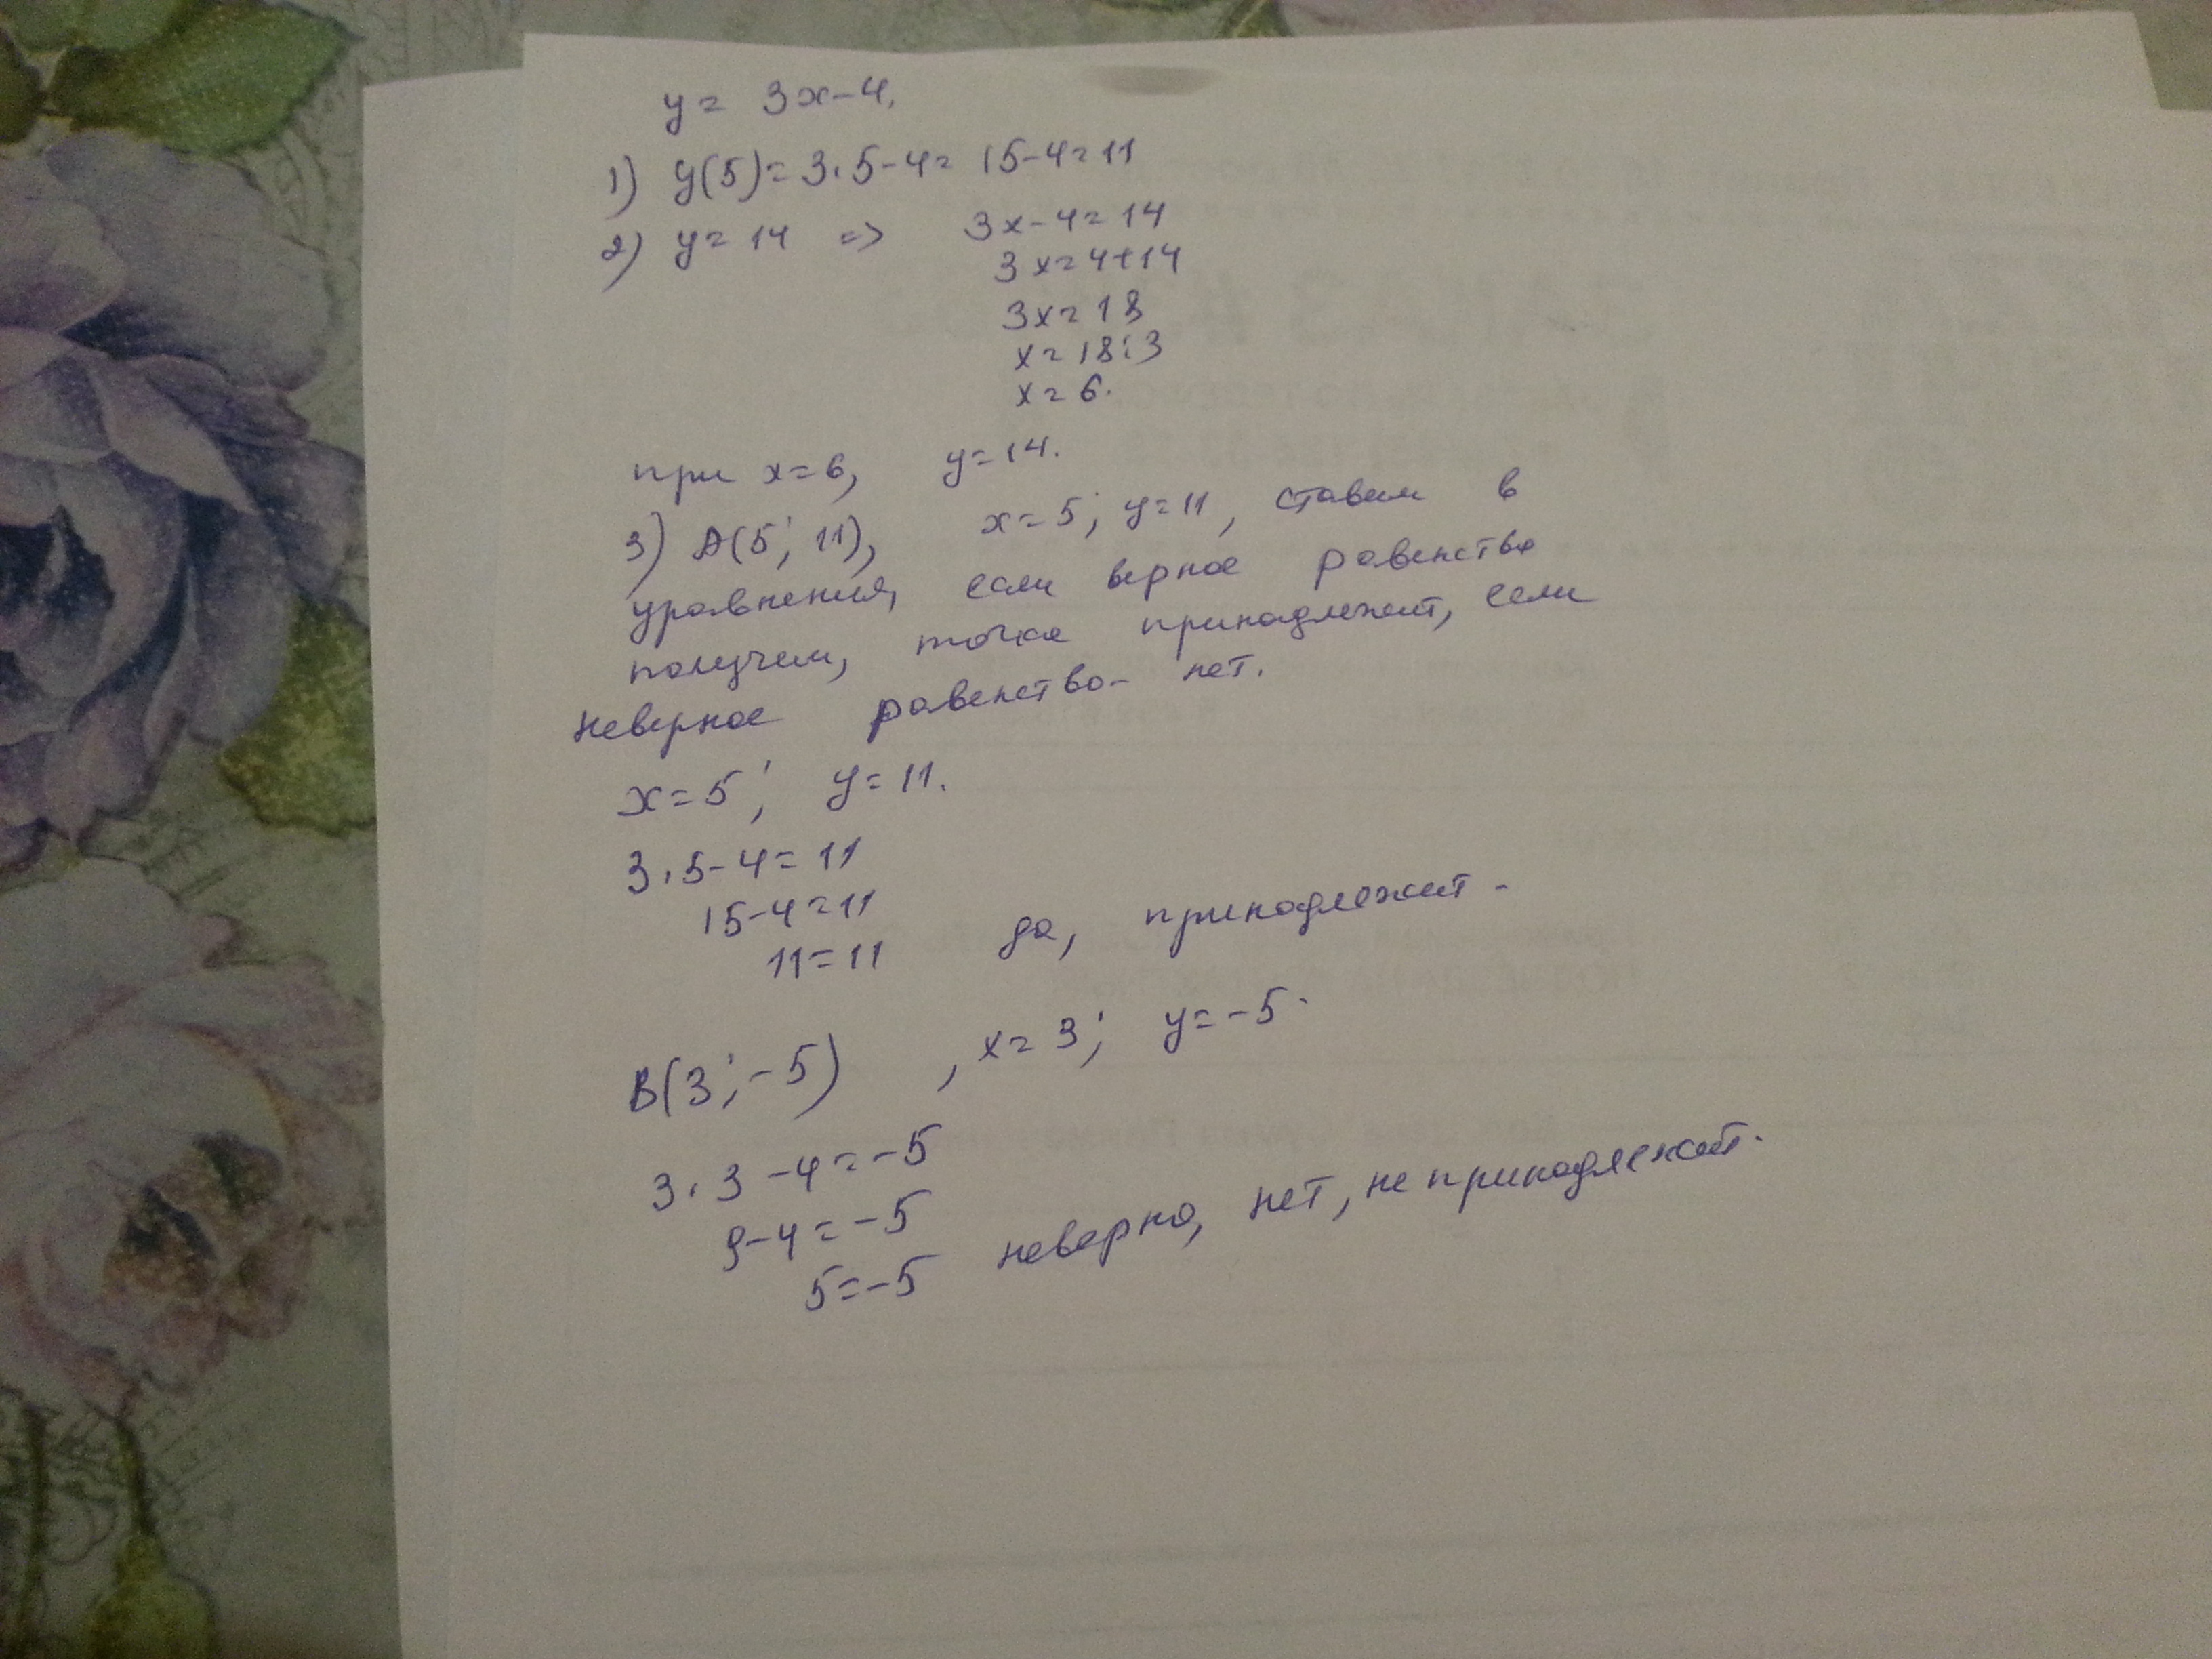 y = 3x-4,
1) y(5)=3·5-4= 15-4=11
2) y=14 => 3x-4=14
3x=4+14
3x=18
x=18:3
x=6.
при x=6, y=14.
3) A(5; 11), x=5; y=11, ставим в
уравнения, если верное равенство
получем, точка принадлежит, если
неверное равенство- нет.
x=5; y=11.
3·5-4=11
15-4=11
11=11 да, принадлежит.
B(3; -5) , x=3; y=-5.
3·3-4=-5
9-4=-5
5=-5 неверно, нет, не принадлежит.